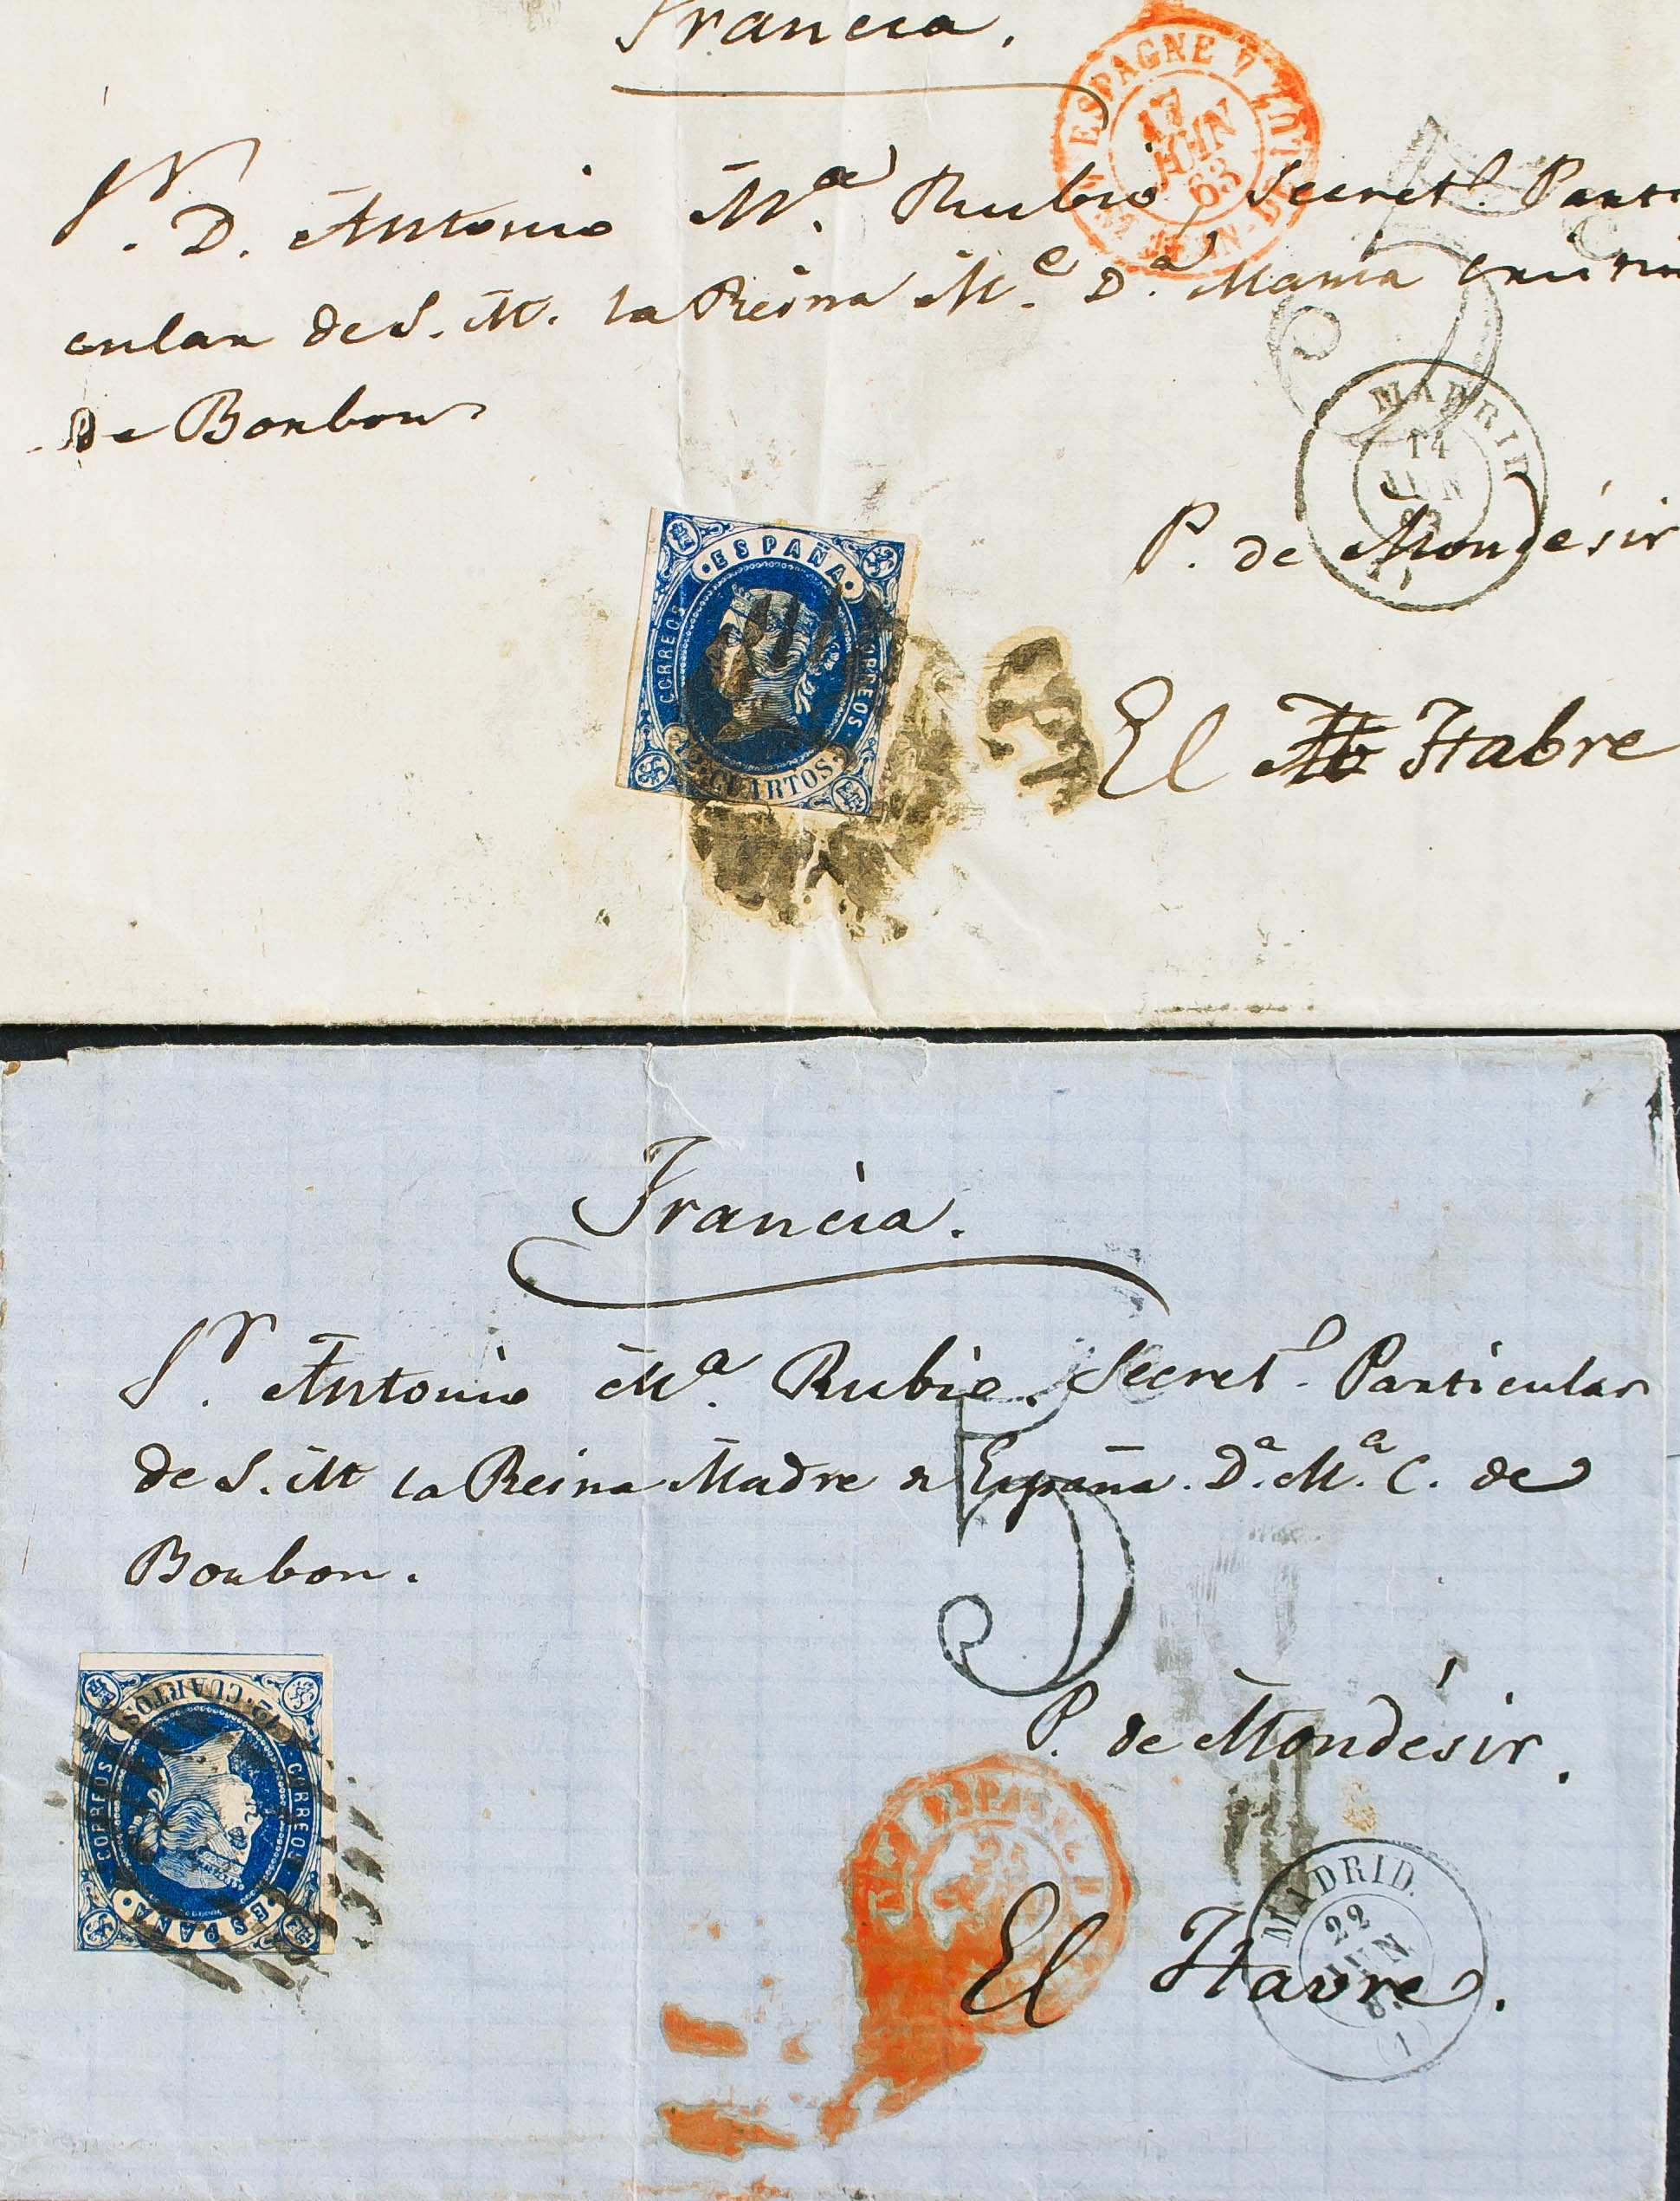 Francia.
ESPAGNE
17
JUIN
63
Sr. D. Antonio Ma. Rubio, Secretº. Parti
cular de S. M. la Reina Me. Da. Maria Cristin
de Borbon
5
MADRID
14
JUN
63
(1)
P. de Mondésir
ESPAÑA
CORREOS
CORREOS
12 CUARTOS
El Habre
Francia.
Sr. Antonio Ma. Rubio. Secretº. Particular
de S. M la Reina Madre de España. Da. Ma. C. de
Borbon.
5
P. de Mondésir.
12 CUARTOS
CORREOS
CORREOS
ESPAÑA
ESPAGNE
MADRID.
22
JUN
(1)
El Havre.